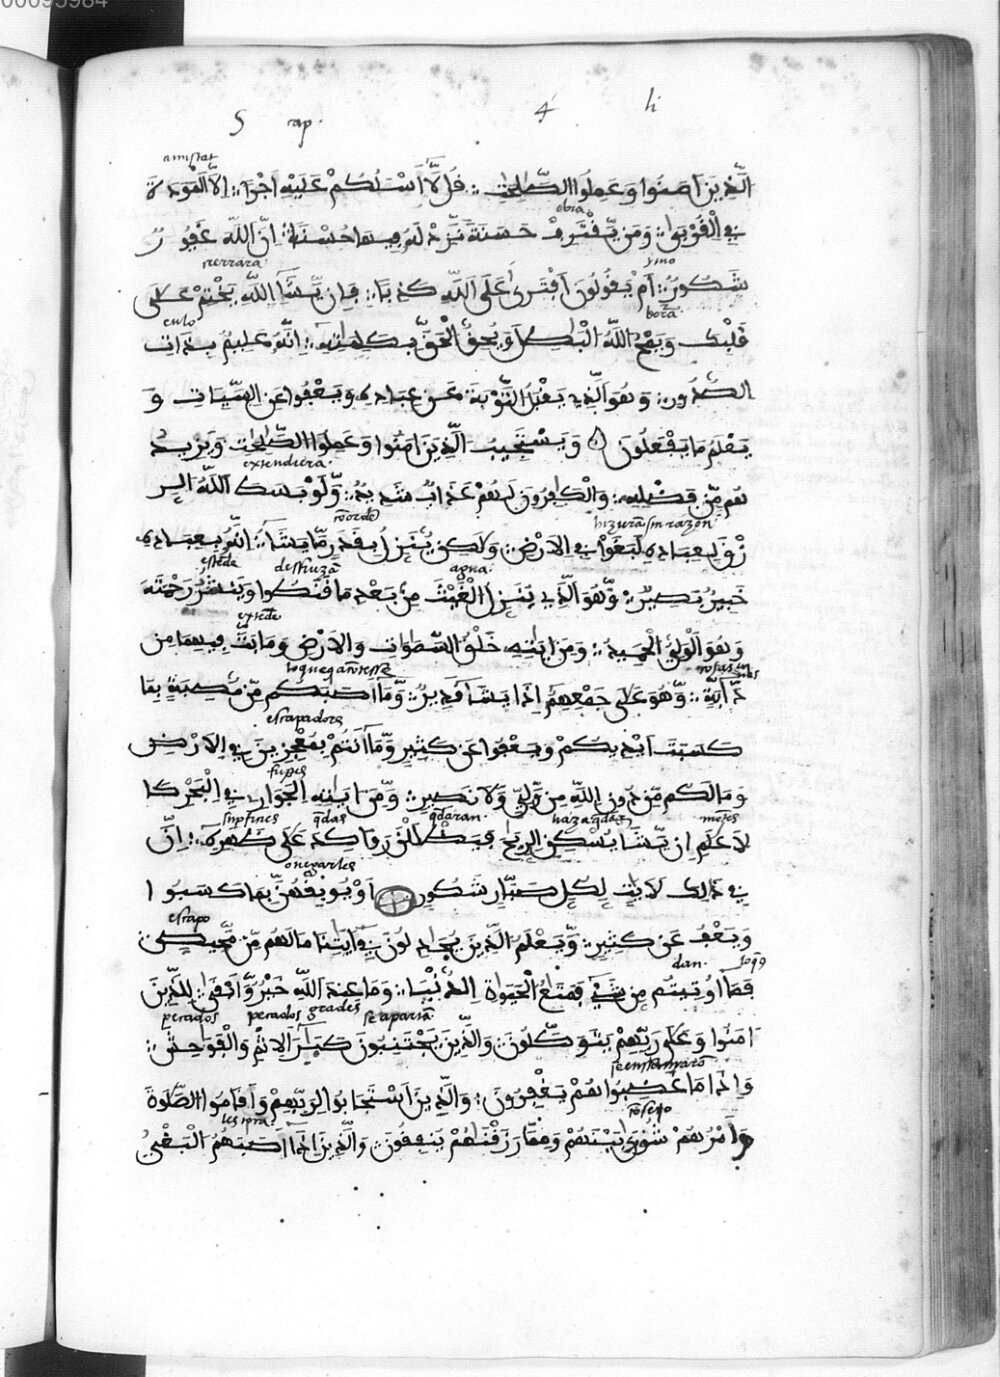 00095984
S cap. 4 li
amistat
الَّذِينَ امَنُوا وَعَمِلُوا الصَّٰلِحَٰتِ قُل لَّا أَسْـَٔلُكُمْ عَلَيْهِ أَجْرًا إِلَّا الْمَوَدَّةَ
obra
فِي الْقُرْبَىٰ وَمَن يَّقْتَرِفْ حَسَنَةً نَّزِدْ لَهُ فِيهَا حُسْنًا إِنَّ اللَّهَ غَفُورٌ
serrara ymo
شَكُورٌ أَمْ يَقُولُونَ افْتَرَىٰ عَلَى اللَّهِ كَذِبًا فَإِن يَّشَإِ اللَّهُ يَخْتِمْ عَلَىٰ
enlo
قَلْبِكَ وَيَمْحُ اللَّهُ الْبَٰطِلَ وَيُحِقُّ الْحَقَّ بِكَلِمَٰتِهِ إِنَّهُ عَلِيمٌ بِذَاتِ
الصُّدُورِ وَهُوَ الَّذِي يَقْبَلُ التَّوْبَةَ عَنْ عِبَادِهِ وَيَعْفُوا عَنِ السَّيِّـَٔاتِ وَ
يَعْلَمُ مَا يَفْعَلُونَ وَيَسْتَجِيبُ الَّذِينَ امَنُوا وَعَمِلُوا الصَّٰلِحَٰتِ وَيَزِيدُ
extendiera
هُم مِّن فَضْلِهِ وَالْكَٰفِرُونَ لَهُمْ عَذَابٌ شَدِيدٌ وَلَوْ بَسَطَ اللَّهُ الرِّ
hizurā sin razon
زْقَ لِعِبَادِهِ لَبَغَوْا فِي الْأَرْضِ وَلَٰكِن يُنَزِّلُ بِقَدَرٍ مَّا يَشَاءُ إِنَّهُ بِعِبَادِهِ
agua
خَبِيرٌ بَصِيرٌ وَهُوَ الَّذِي يُنَزِّلُ الْغَيْثَ مِن بَعْدِ مَا قَنَطُوا وَيَنشُرُ رَحْمَتَهُ
وَهُوَ الْوَلِيُّ الْحَمِيدُ وَمِنْ ايَٰتِهِ خَلْقُ السَّمَٰوَاتِ وَالْأَرْضِ وَمَا بَثَّ فِيهِمَا مِن
دَابَّةٍ وَهُوَ عَلَىٰ جَمْعِهِمْ إِذَا يَشَاءُ قَدِيرٌ وَمَا أَصَٰبَكُم مِّن مُّصِيبَةٍ بِمَا
escapadores
كَسَبَتْ أَيْدِيكُمْ وَيَعْفُوا عَن كَثِيرٍ وَمَا أَنتُم بِمُعْجِزِينَ فِي الْأَرْضِ
وَمَا لَكُم مِّن دُونِ اللَّهِ مِن وَّلِيٍّ وَلَا نَصِيرٍ وَمِنْ ايَٰتِهِ الْجَوَارِ فِي الْبَحْرِ كَا
qdaran
لْأَعْلَٰمِ إِن يَّشَأْ يُسْكِنِ الرِّيحَ فَيَظْلَلْنَ رَوَاكِدَ عَلَىٰ ظَهْرِهِ إِنَّ
فِي ذَٰلِكَ لَأيَٰتٍ لِّكُلِّ صَبَّارٍ شَكُورٍ أَوْ يُوبِقْهُنَّ بِمَا كَسَبُوا
escapo
وَيَعْفُ عَن كَثِيرٍ وَيَعْلَمُ الَّذِينَ يُجَٰدِلُونَ فِي ايَٰتِنَا مَا لَهُم مِّن مَّحِيصٍ
dan
فَمَا أُوتِيتُم مِّن شَيْءٍ فَمَتَٰعُ الْحَيَوٰةِ الدُّنْيَا وَمَا عِندَ اللَّهِ خَيْرٌ وَأَبْقَىٰ لِلَّذِينَ
pecados pecados grādes se apartā
امَنُوا وَعَلَىٰ رَبِّهِمْ يَتَوَكَّلُونَ وَالَّذِينَ يَجْتَنِبُونَ كَبَٰئِرَ الْإِثْمِ وَالْفَوَٰحِشَ
وَإِذَا مَا غَضِبُوا هُمْ يَغْفِرُونَ وَالَّذِينَ اسْتَجَابُوا لِرَبِّهِمْ وَأَقَامُوا الصَّلَوٰةَ
وَأَمْرُهُمْ شُورَىٰ بَيْنَهُمْ وَمِمَّا رَزَقْنَٰهُمْ يُنفِقُونَ وَالَّذِينَ إِذَا أَصَابَهُمُ الْبَغْيُ